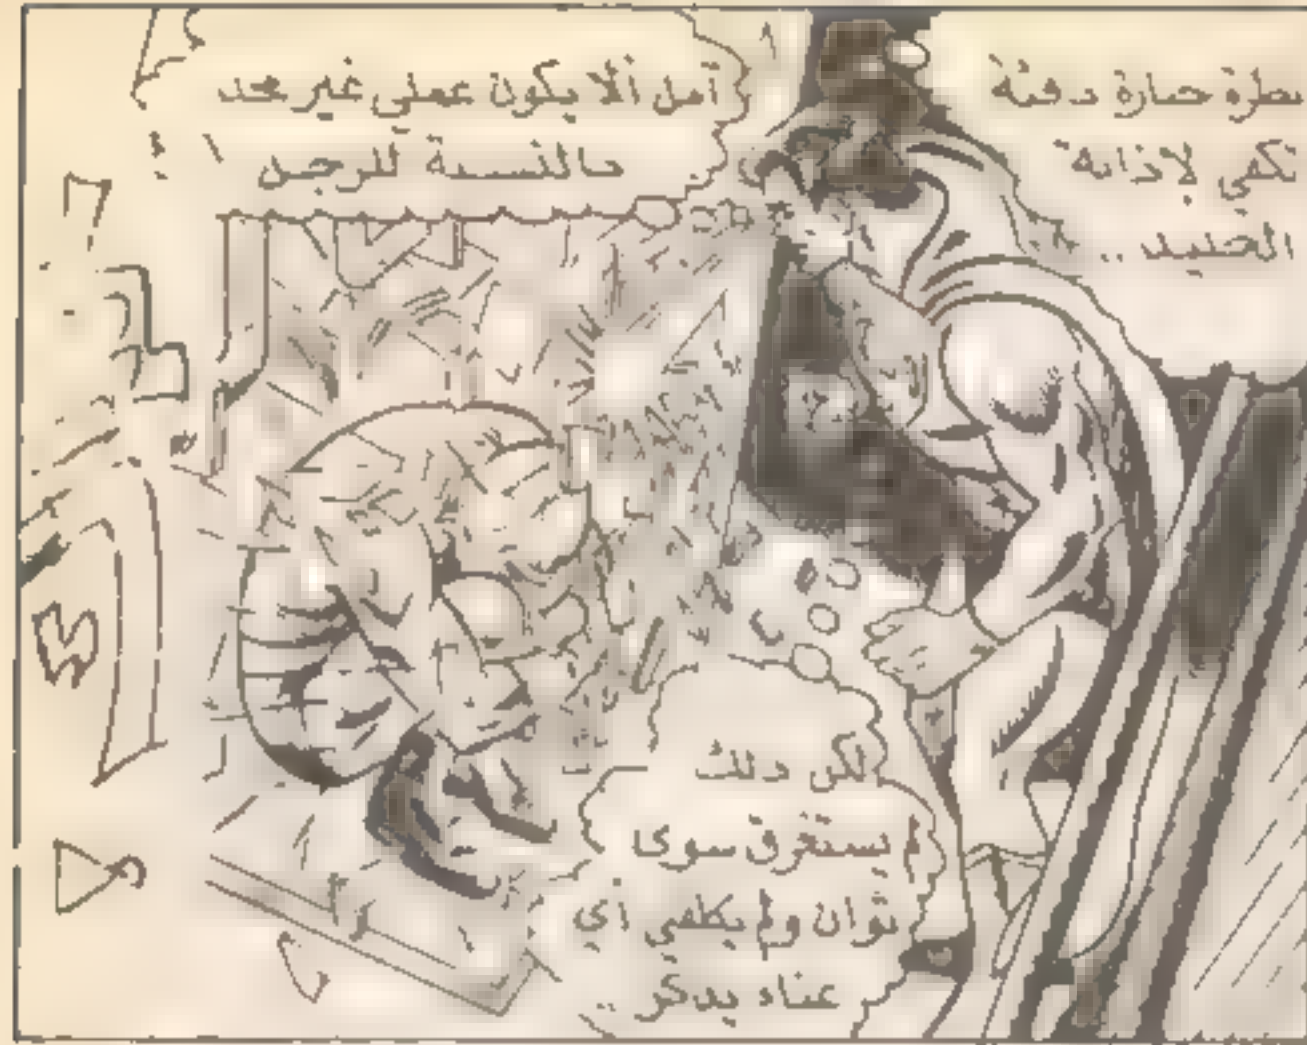 نظرة حارة دقيقة
تكفي لإذابة
الجليد ..
آمل ألا يكون عملي غير مجد
بالنسبة للرجل !
لكن ذلك
لم يستغرق سوى
ثوان ولم يكلفني أي
عناء يذكر ..